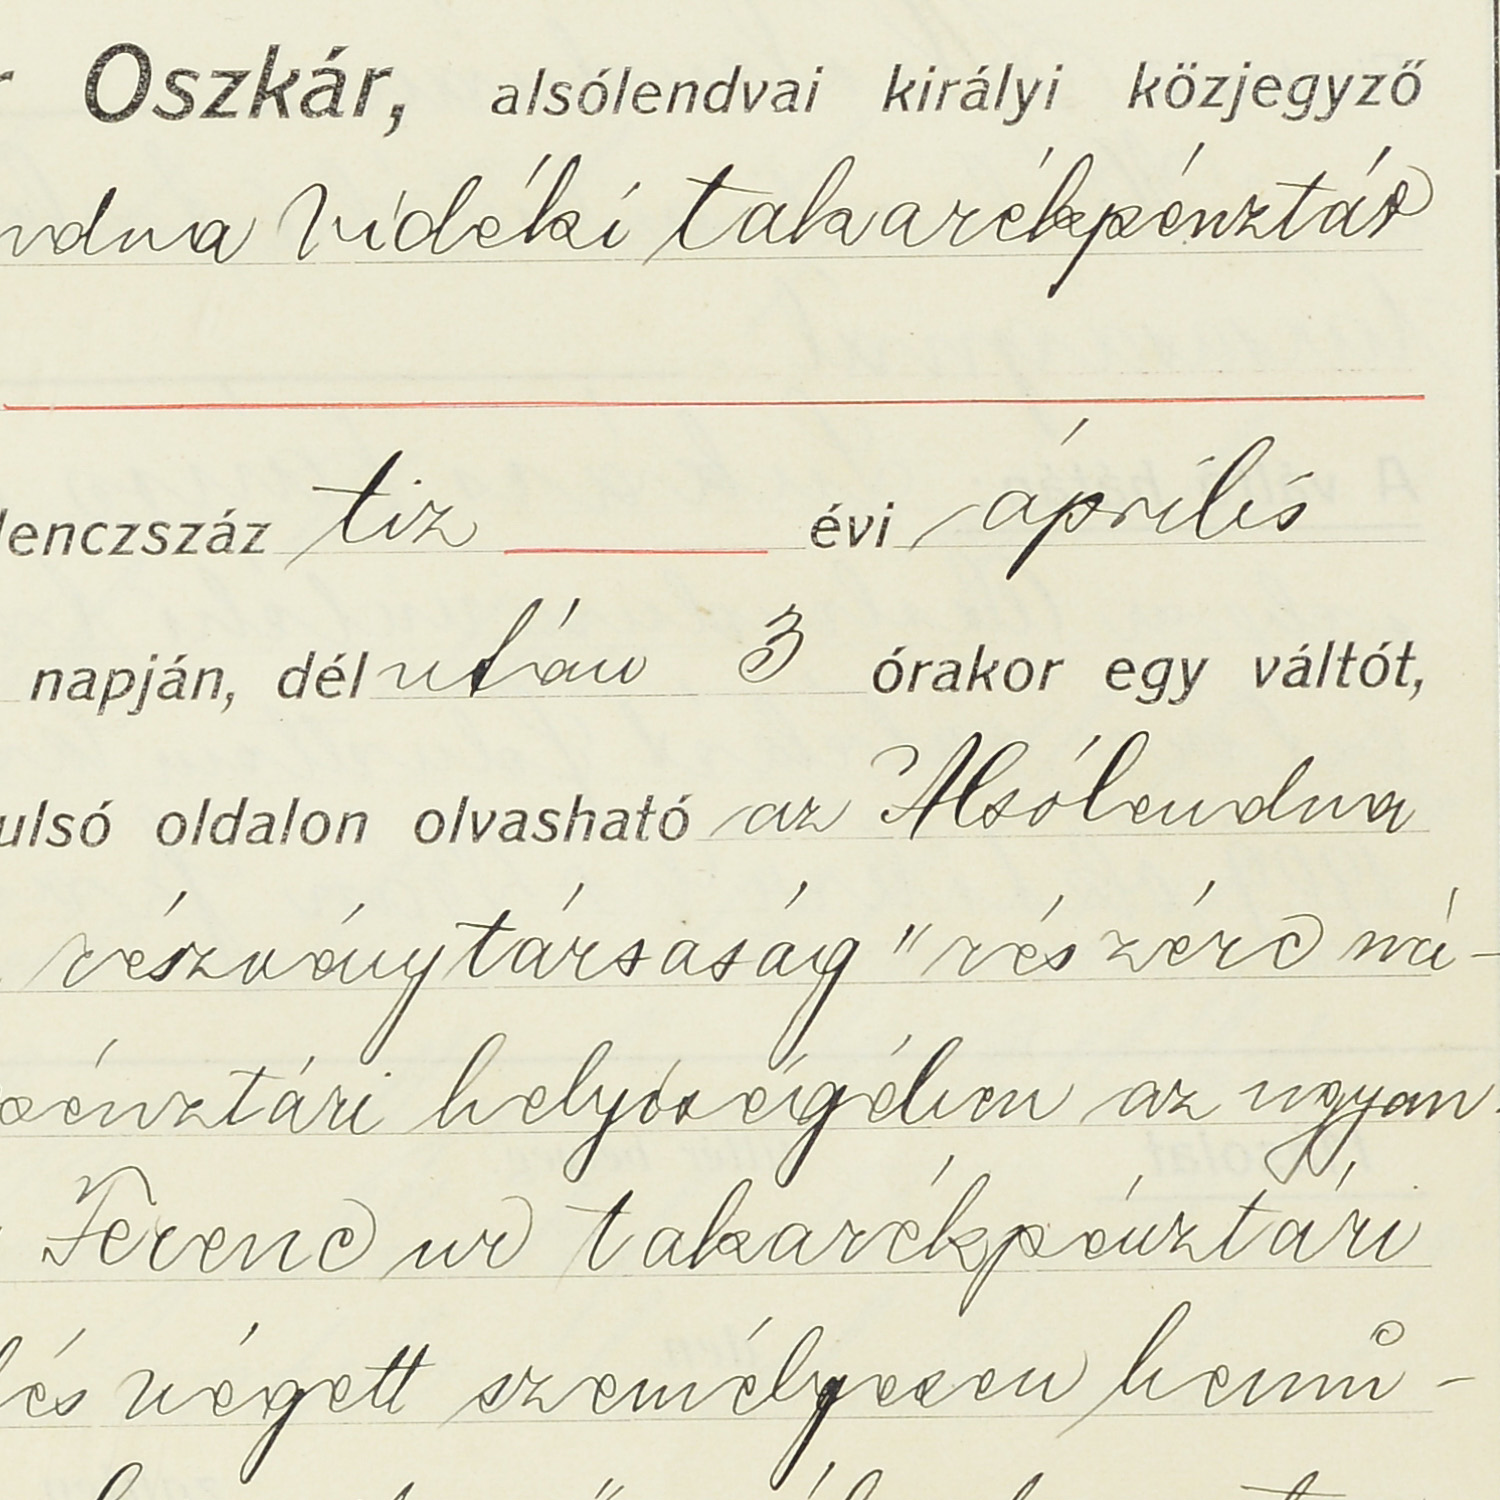 r Oszkár, alsólendvai királyi közjegyző
ndva vidéki takarékpénztár
lenczszáz tiz évi április
napján, délután 3 órakor egy váltót,
ulsó oldalon olvasható az Alsólendva
részvénytársaság" részére má-
pénztári helyiségében az ugyan-
Ferenc ur takarékpénztári
lés végett személyesen bemu-